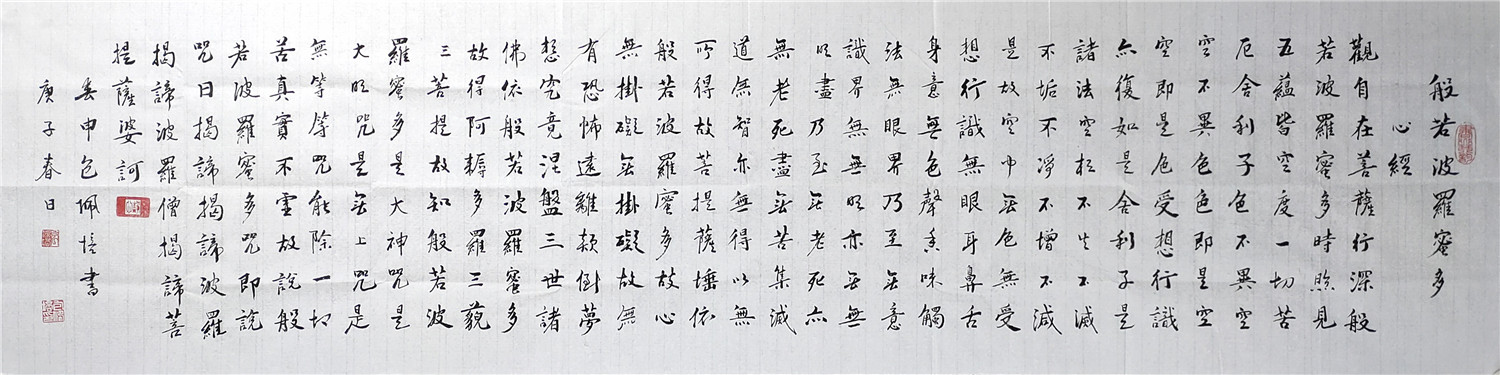 般若波羅蜜多
心經
觀自在菩薩行深般
若波羅蜜多時照見
五蘊皆空度一切苦
厄舍利子色不異空
空不異色色即是空
空即是色受想行識
亦復如是舍利子是
諸法空相不生不滅
不垢不淨不增不減
是故空中无色無受
想行識無眼耳鼻舌
身意無色聲香味觸
法無眼界乃至无意
識界無無明亦无無
明盡乃至无老死亦
無老死盡无苦集滅
道無智亦無得以無
所得故菩提薩埵依
般若波羅蜜多故心
無掛礙无掛礙故無
有恐怖遠離顛倒夢
想究竟涅盤三世諸
佛依般若波羅蜜多
故得阿耨多羅三藐
三菩提故知般若波
羅蜜多是大神咒是
大明咒是无上咒是
無等等咒能除一切
苦真實不虛故說般
若波羅蜜多咒即說
咒曰揭諦揭諦波羅
揭諦波羅僧揭諦菩
提薩婆訶
申包佩書
庚子春日